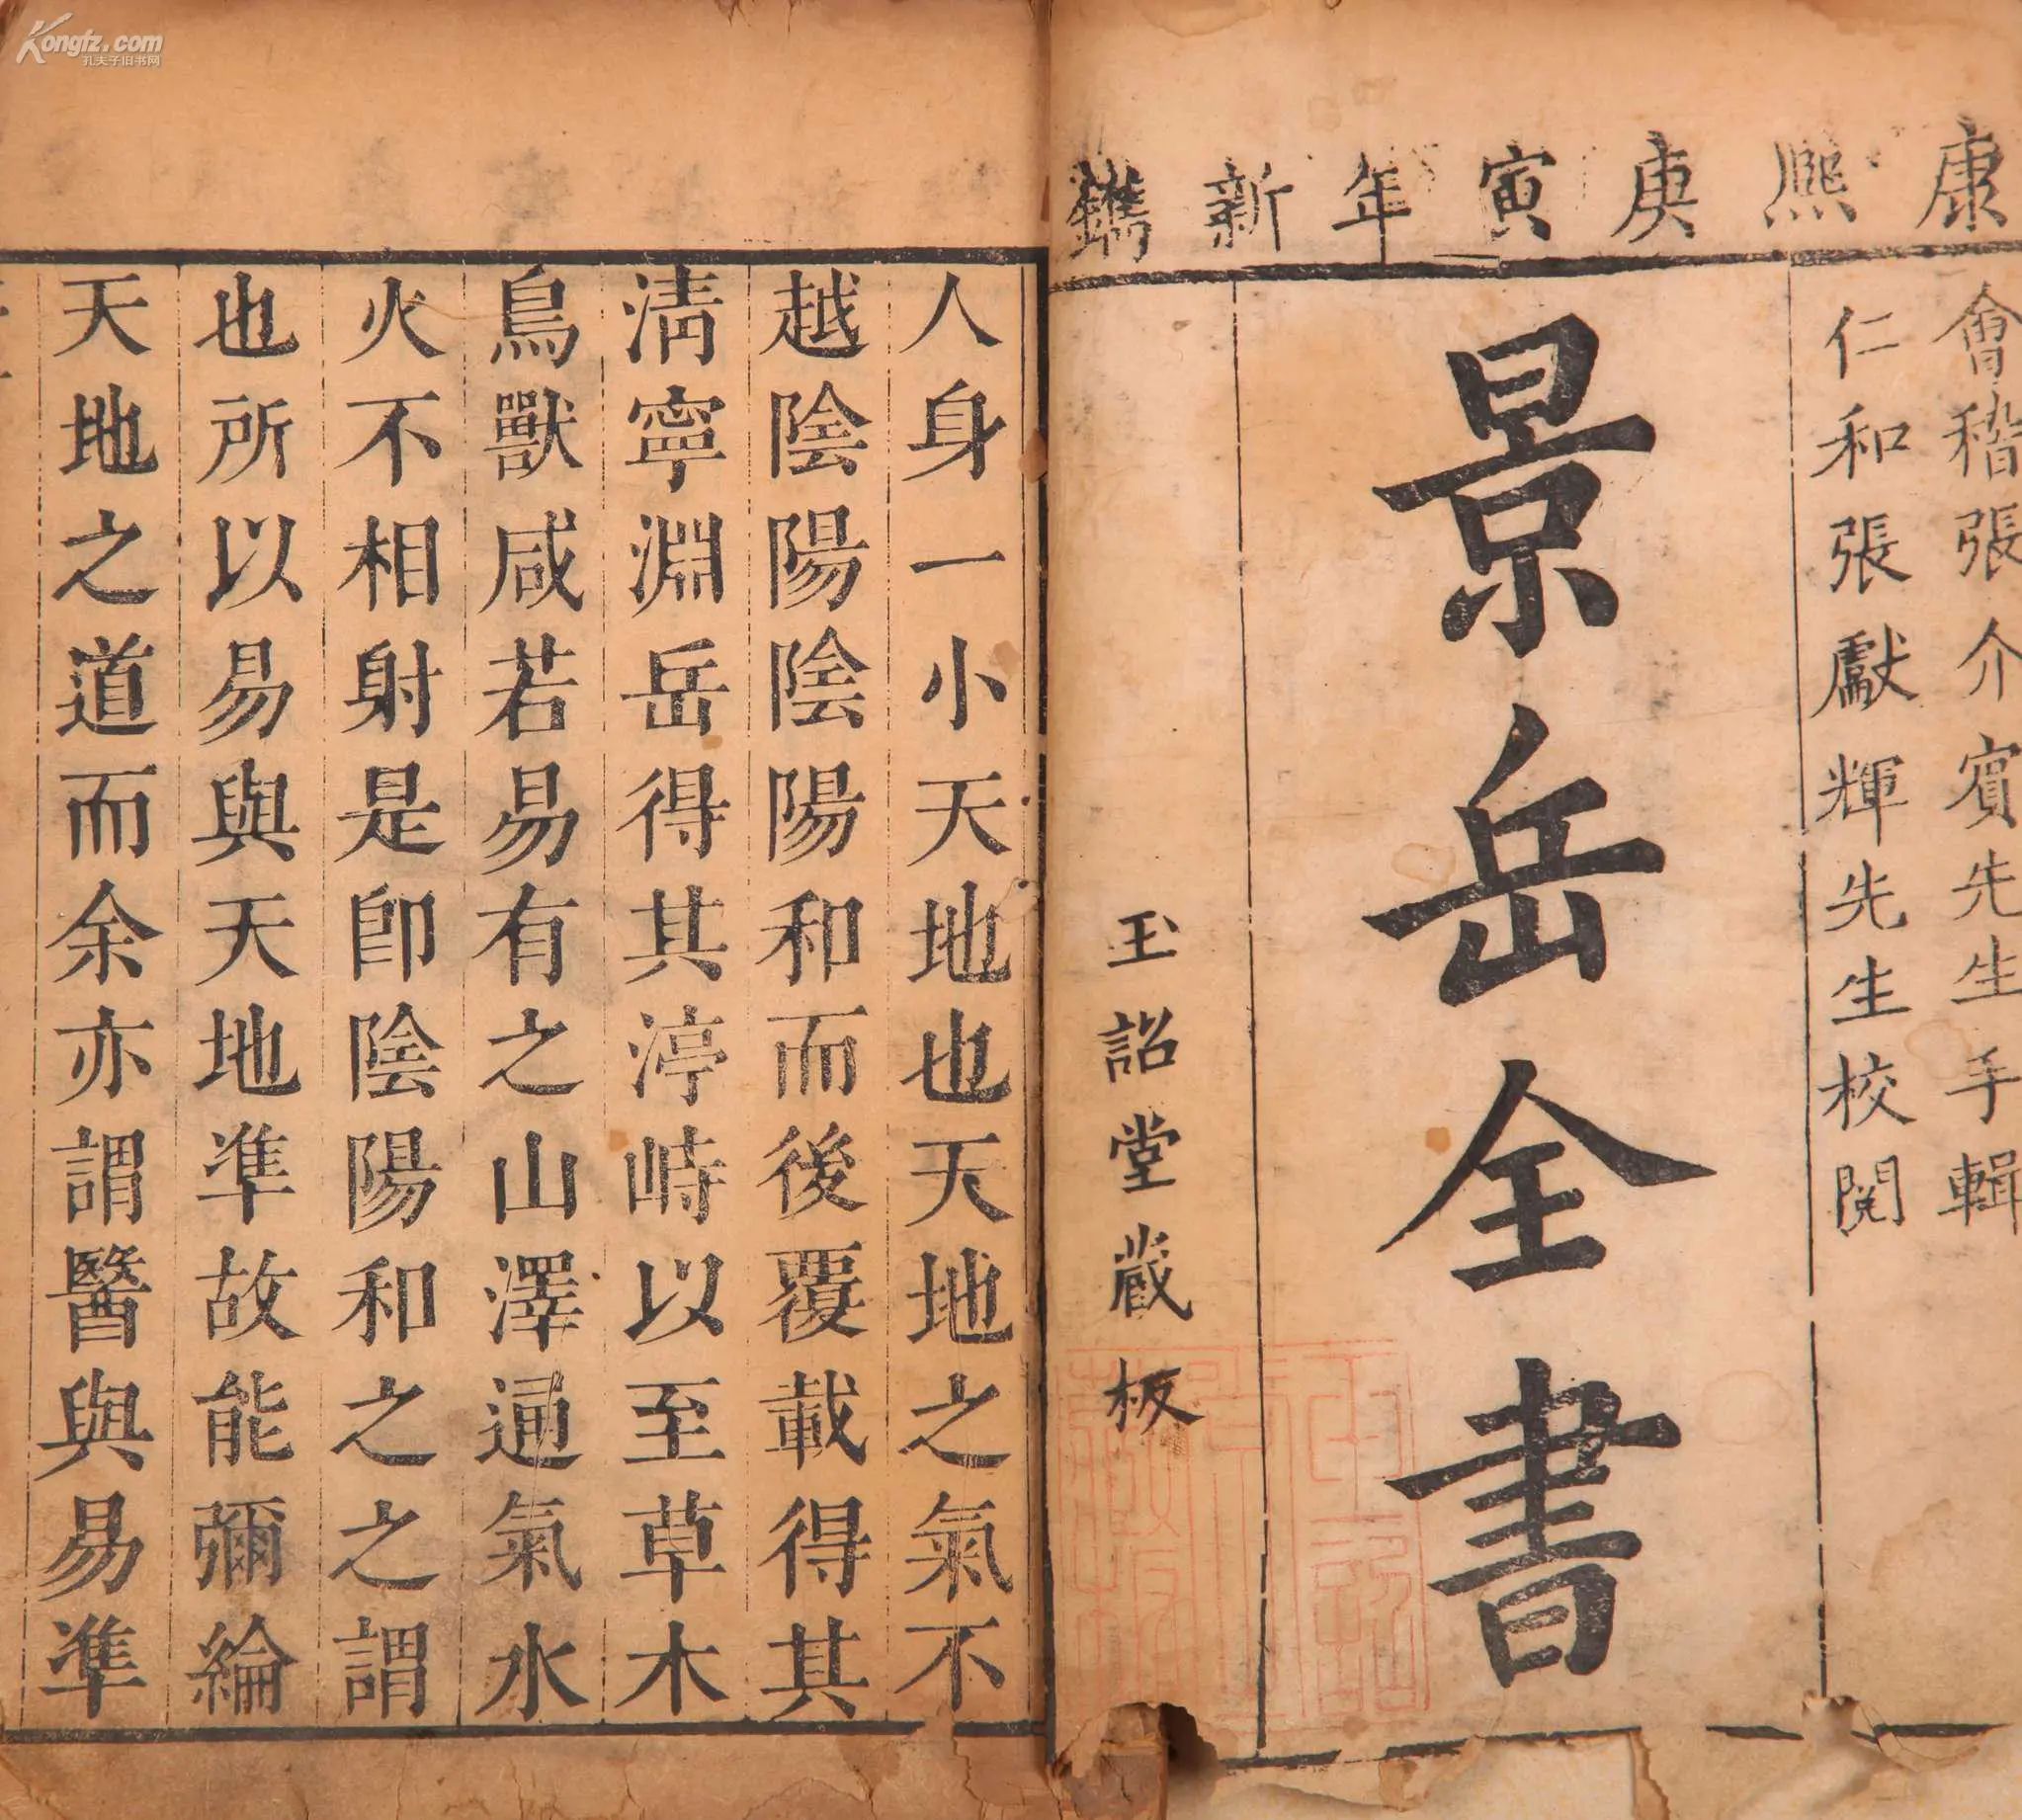 Kongfz.com
孔夫子旧书网
康熙庚寅年新鐫
會稽張介賓先生手輯
仁和張獻輝先生校閱
景岳全書
玉詔堂藏板
人身一小天地也天地之氣不
越陰陽陰陽和而後覆載得其
淸寧淵岳得其渟峙以至草木
鳥獸咸若易有之山澤通氣水
火不相射是卽陰陽和之之謂
也所以易與天地準故能彌綸
天地之道而余亦謂醫與易準